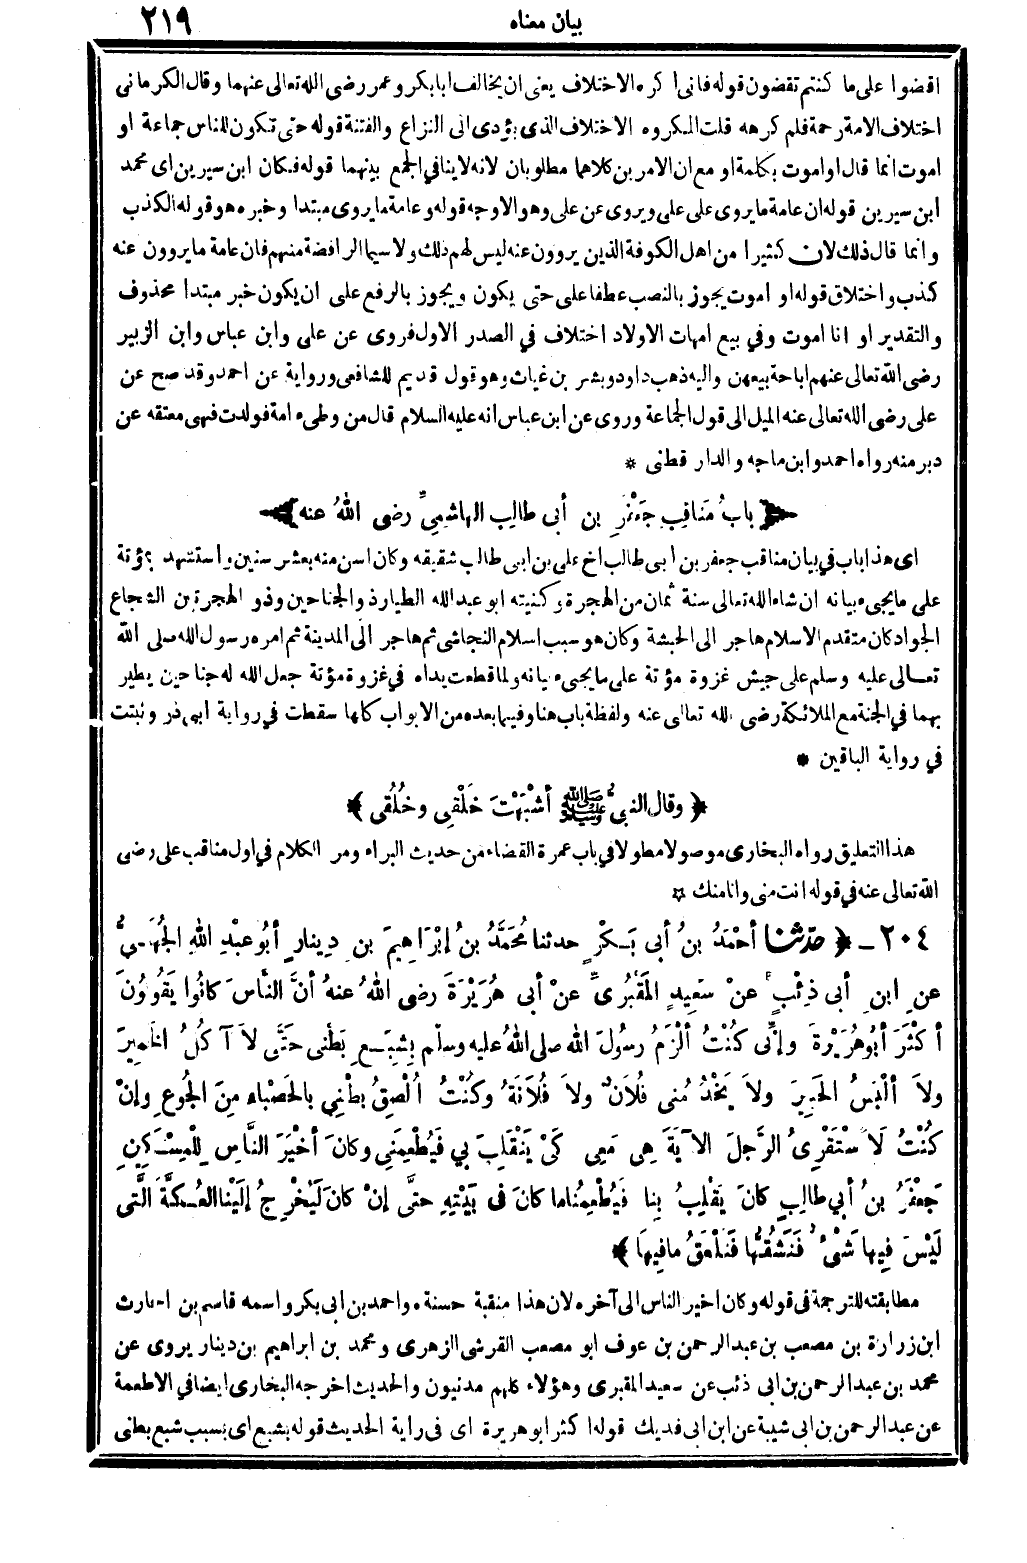 بيان معناه ٢١٩
اقضوا على ما كنتم تقضون قوله فانى أكره الاختلاف يعنى ان يخالف ابا بكر وعمر رضى الله تعالى عنهما وقال الكرمانى
اختلاف الامة رحمة فلم كرهه قلت المكروه الاختلاف الذى يؤدى الى النزاع والفتنة قوله حتى تكون للناس جماعة او
اموت انما قال او اموت بكلمة او مع ان الامرين كلاهما مطلوبان لانه لا ينافي الجمع بينهما قوله فكان ابن سيرين اى محمد
ابن سيرين قوله ان عامة ما يروى على على ويروى عن على وهو الاوجه قوله وعامة ما يروى مبتدا وخبره هو قوله الكذب
وانما قال ذلك لان كثيرا من اهل الكوفة الذين يروون عنه ليس لهم ذلك ولا سيما الرافضة منهم فان عامة ما يروون عنه
كذب واختلاق قوله او اموت يجوز بالنصب عطفا على حتى يكون ويجوز بالرفع على ان يكون خبر مبتدا محذوف
والتقدير او انا اموت وفي بيع امهات الاولاد اختلاف في الصدر الاول فروى عن على وابن عباس وابن الزبير
رضى الله تعالى عنهم اباحة بيعهن واليه ذهب داود وبشر بن غياث وهو قول قديم للشافعى ورواية عن احمد وقد صح عن
على رضى الله تعالى عنه الميل الى قول الجماعة وروى عن ابن عباس انه عليه السلام قال من وطىء امة فولدت فهى معتقه عن
دبر منه رواه احمد وابن ماجه والدار قطنى *
﴿ بابُ مَناقِبِ جَعْفَرِ بنِ أبى طالِبِ الهاشِمِيِّ رضى اللهُ عنه ﴾
اى هذا باب في بيان مناقب جعفر بن أبى طالب اخ على بن ابى طالب شقيقه وكان اسن منه بعشر سنين واستشهد بمؤتة
على ما يجىء بيانه ان شاء الله تعالى سنة ثمان من الهجرة وكنيته ابو عبد الله الطيار ذو الجناحين وذو الهجرتين الشجاع
الجواد كان متقدم الاسلام هاجر الى الحبشة وكان هو سبب اسلام النجاشى ثم هاجر الى المدينة ثم امره رسول الله صلى الله
تعالى عليه وسلم على جيش غزوة مؤتة على ما يجىء بيانه ولما قطعت يداه في غزوة مؤتة جعل الله له جناحين يطير
بهما في الجنة مع الملائكة رضى الله تعالى عنه ولفظة باب هنا وفيما بعده من الابواب كلها سقطت في رواية ابى ذر وثبتت
في رواية الباقين *
﴿ وقال النبيُّ ﷺ أشْبَهْتَ خَلْقِى وخُلُقى ﴾
هذا التعليق رواه البخارى موصولا مطولا في باب عمرة القضاء من حديث البراء ومر الكلام في اول مناقب على رضى
الله تعالى عنه في قوله انت منى وانا منك *
٢٠٤ ـ ﴿ حدّثنا أحْمَدُ بنُ أبى بَكْرٍ حدثنا مُحَمَّدُ بنُ إبْرَاهِيمَ بنِ دِينارٍ أبُو عبْدِ اللهِ الجُهَنِيُّ
عنِ ابنِ أبى ذِئْبٍ عنْ سَعِيدٍ المَقْبُرِىِّ عنْ أبى هُرَيْرَةَ رضى اللهُ عنهُ أنَّ النَّاسَ كانُوا يَقُولُونَ
أكْثَرَ أبُو هُرَيْرَةَ وإنِّى كُنْتُ ألْزَمُ رسُولَ الله صلى اللهُ عليه وسلّم بِشِبَعِ بَطْنى حَتَّى لاَ آكُلُ الخَمِيرَ
ولاَ ألْبَسُ الحَبِيرَ ولاَ يَخْدُمُنى فُلاَنٌ ولاَ فُلاَنَةُ وكُنْتُ أُلْصِقُ بطْنِي بالحَصْباءِ مِنَ الجُوعِ وإنْ
كُنْتُ لَأسْتَقْرِئُ الرَّجلَ الآيَةَ هِىَ مَعِى كَىْ يَنْقَلِبَ بي فَيُطْعِمَنِي وكانَ أخْيَرَ النَّاسِ لِلْمِسْكِينِ
جَعْفَرُ بنُ أبي طالِبٍ كانَ يَنْقَلِبُ بِنا فَيُطْعِمُنا ما كانَ فى بَيْتِهِ حتَّى إنْ كانَ لَيُخْرِجُ إلَيْنا العُكَّةَ الَّتى
لَيْسَ فِيها شَىْءٌ فَنَشُقُّها فَنَلْعَقُ ما فِيها ﴾
مطابقته للترجمة في قوله وكان اخير الناس الى آخره لان هذا منقبة حسنة واحمد بن ابى بكر واسمه قاسم بن الحارث
ابن زرارة بن مصعب بن عبد الرحمن بن عوف ابو مصعب القرشى الزهرى ومحمد بن ابراهيم بن دينار يروى عن
محمد بن عبد الرحمن بن ابى ذئب عن سعيد المقبرى وهؤلاء كلهم مدنيون والحديث اخرجه البخارى ايضا في الاطعمة
عن عبد الرحمن بن ابى شيبة عن ابن ابى فديك قوله اكثر ابو هريرة اى فى رواية الحديث قوله بشبع اى بسبب شبع بطنى